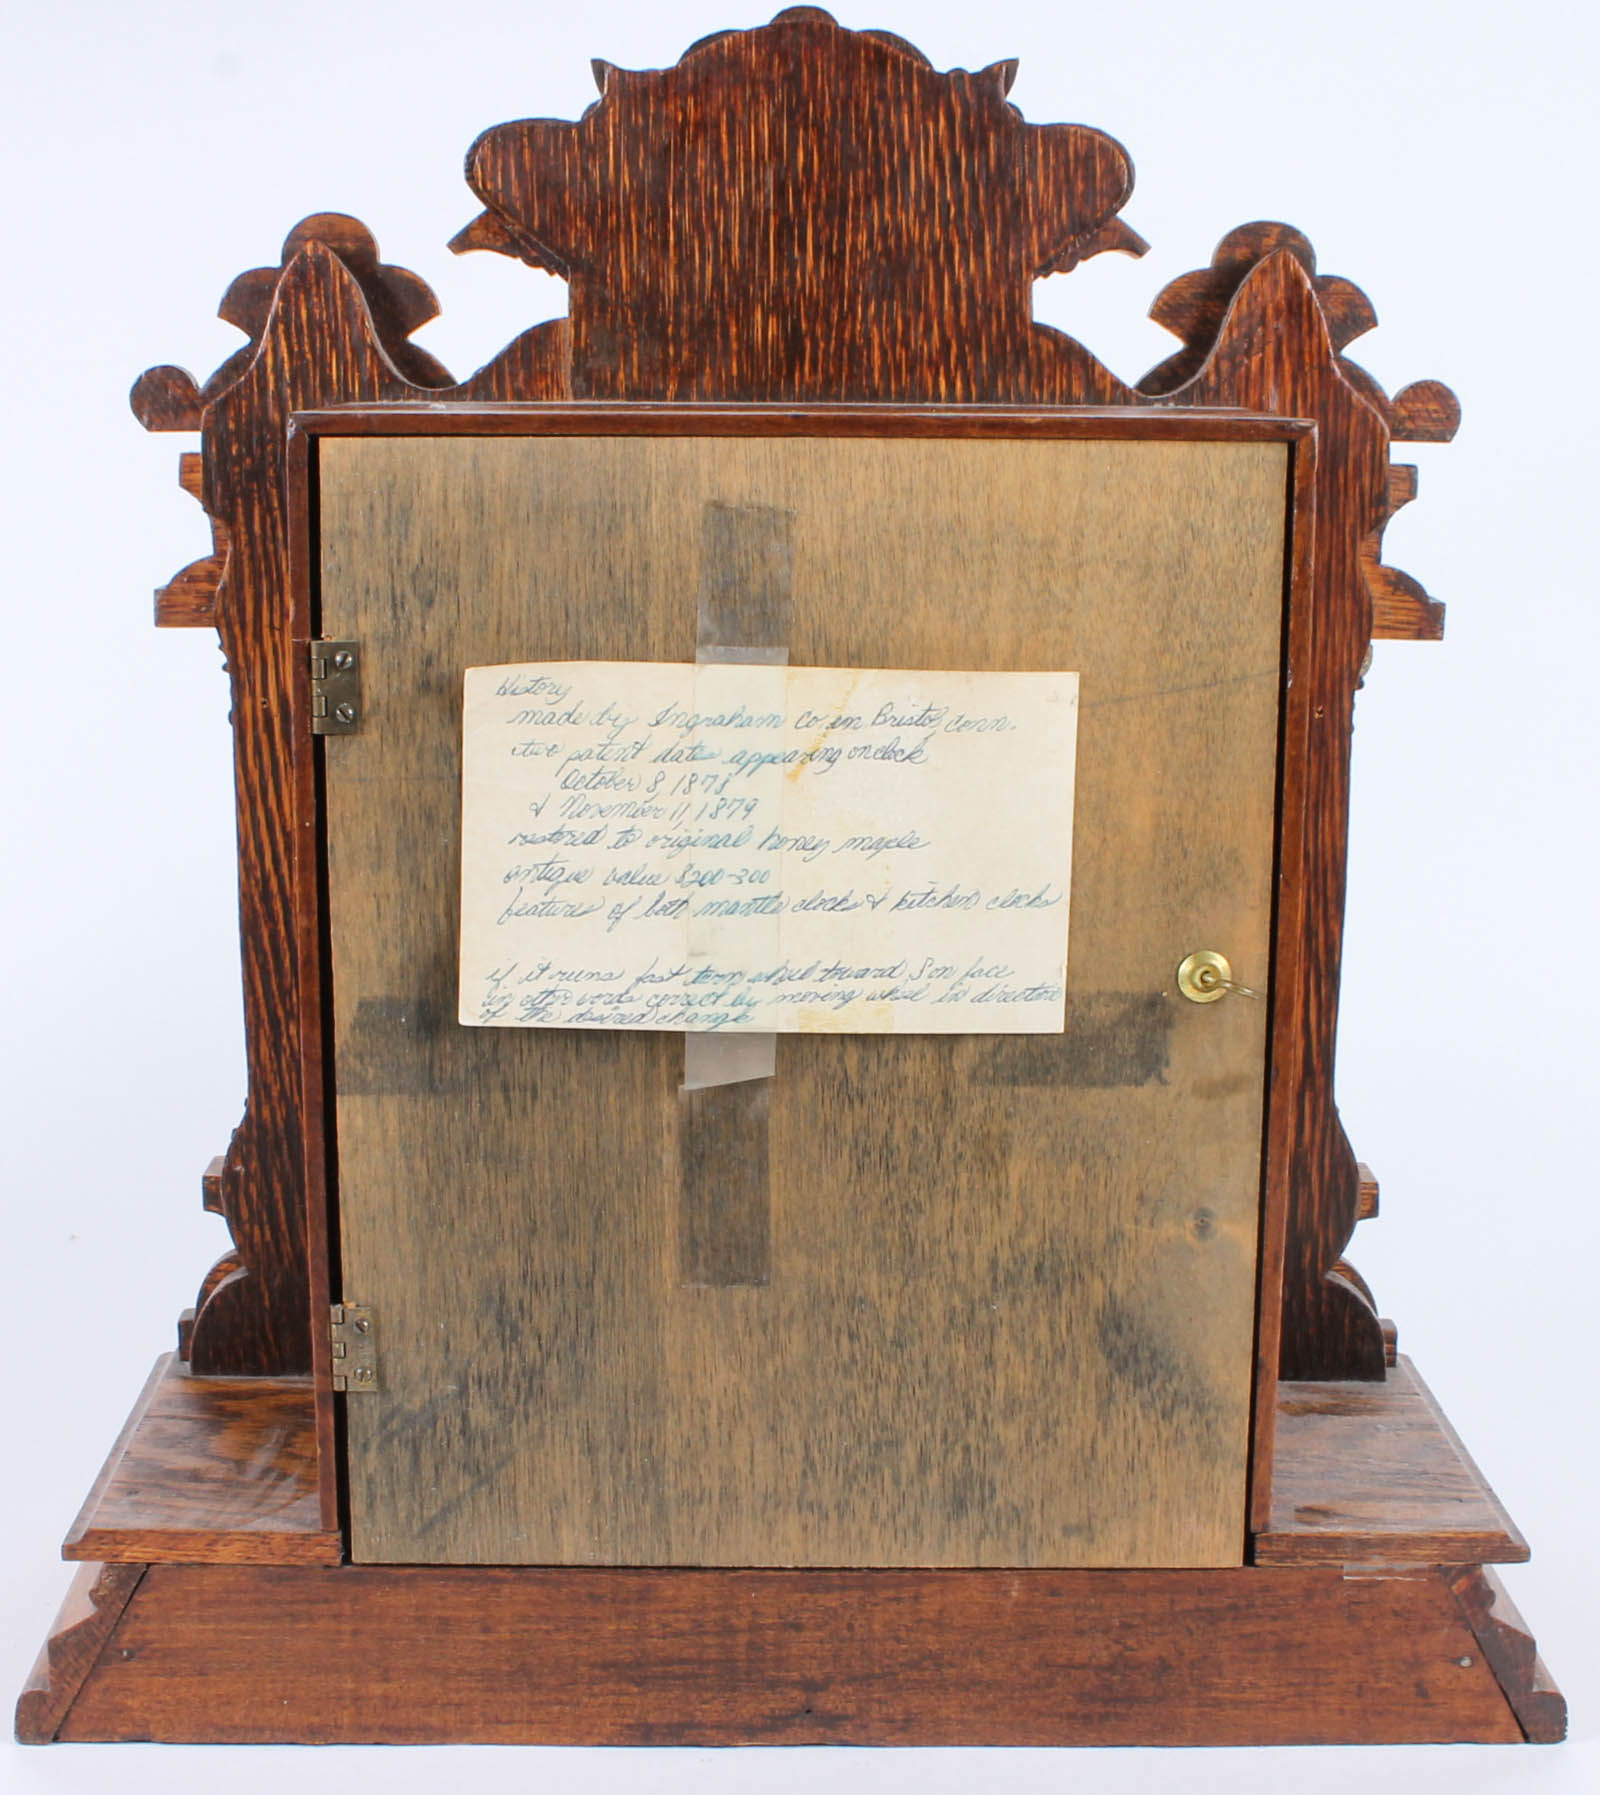 History
made by Ingraham Co in Bristol, Conn.
two patent dates appearing on clock
October 8, 1878
& November 11, 1879
restored to original honey maple
antique value $200-300
features of both mantle clocks & kitchen clocks
if it runs fast turn wheel toward S on face
in other words correct by moving wheel in direction
of the desired change